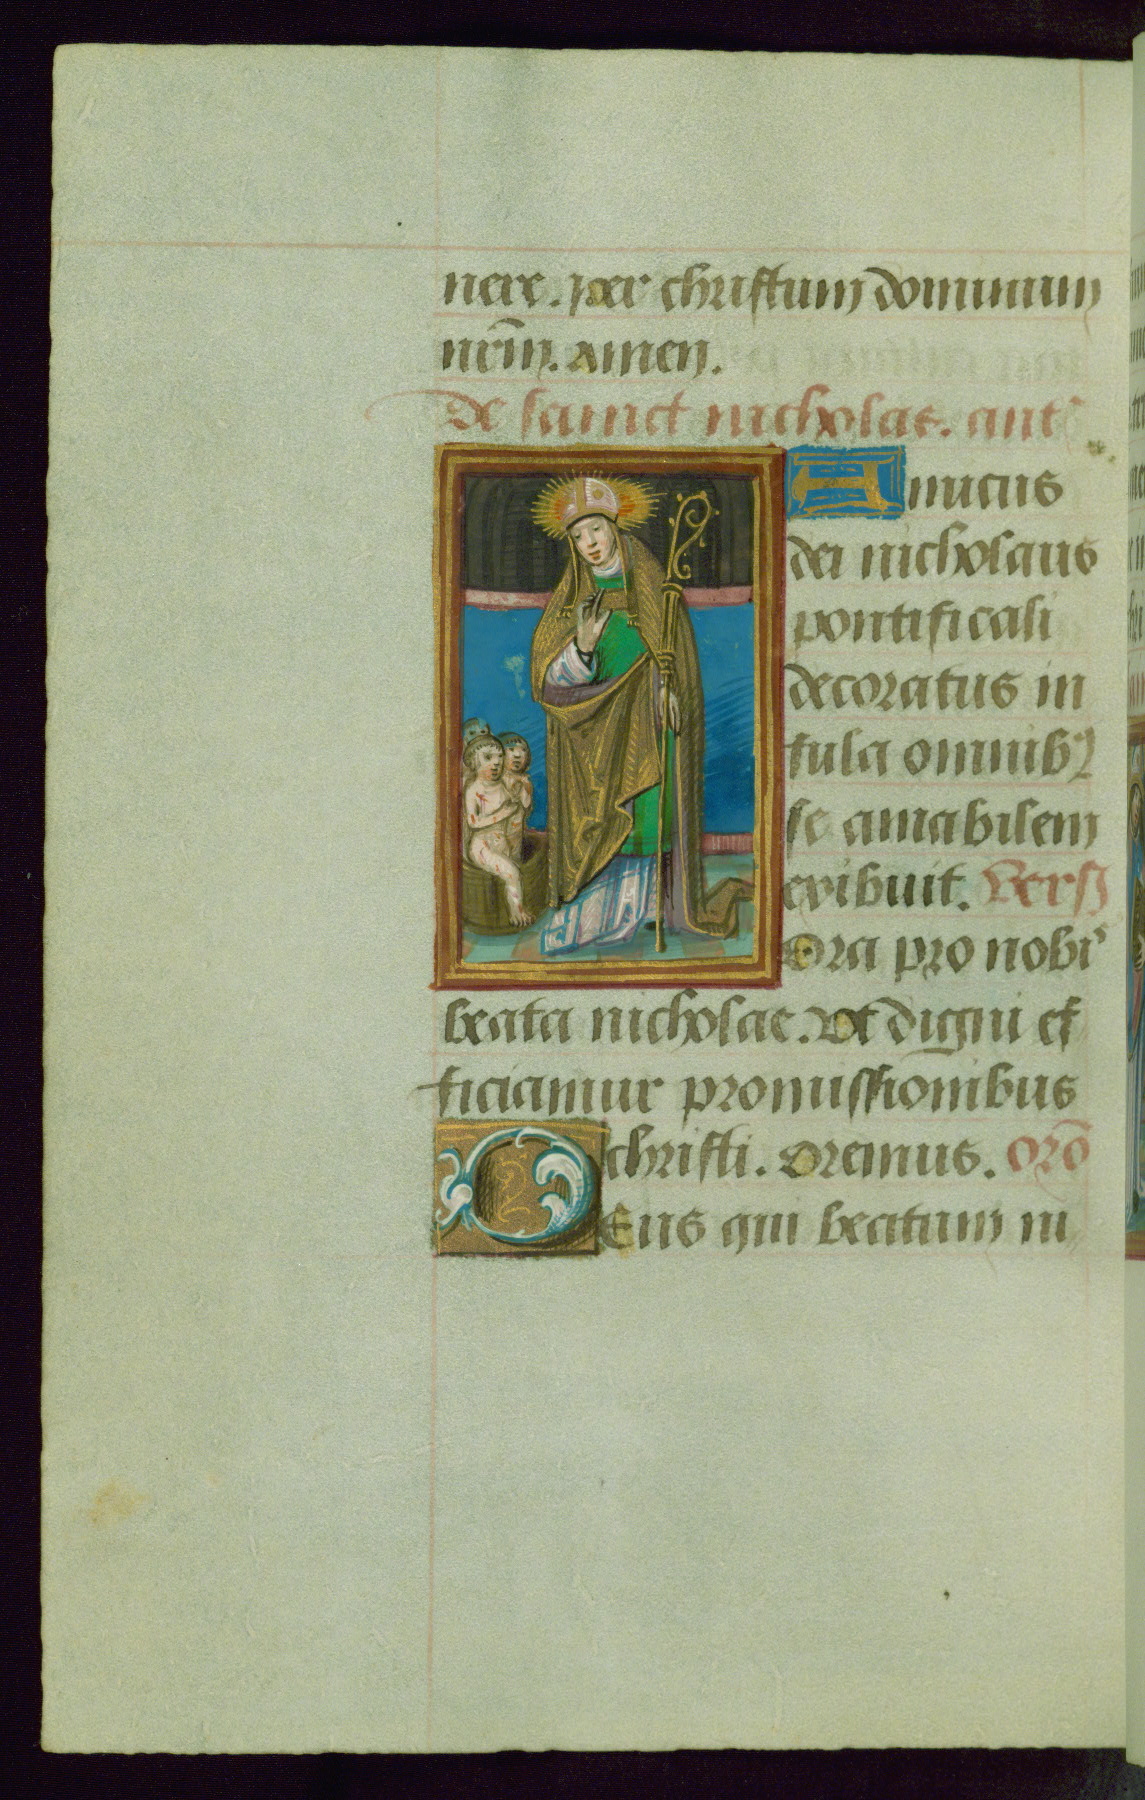 nere. per christum dominum
nr̄m. amen.
de sainct nicholae. ant'
Amicus
dei nicholaus
pontificali
decoratus in
fula omnibꝰ
se amabilem
exibuit. Vers
Ora pro nobi'
beata nicholae. Vt digni ef
ficiamur promissionibus
christi. Oremus. orō
DEus qui beatum ni